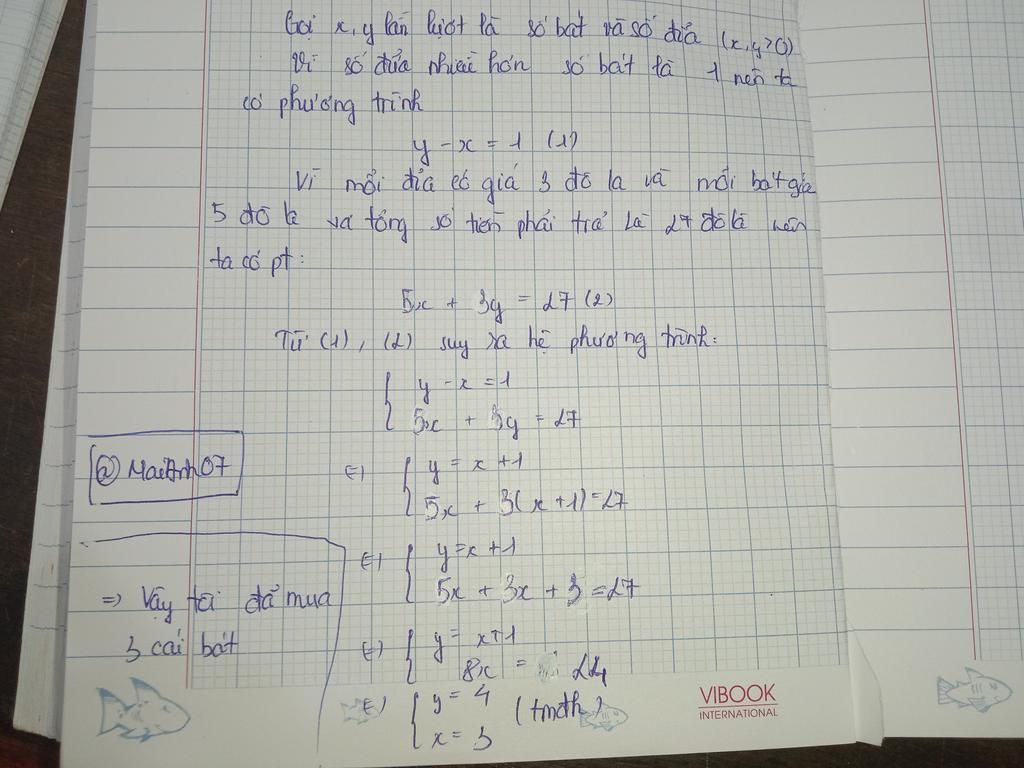 Gọi x, y lần lượt là số bát và số đĩa (x, y > 0)
Vì số đĩa nhiều hơn số bát là 1 nên ta
có phương trình
y - x = 1 (1)
Vì mỗi đĩa có giá 3 đô la và mỗi bát giá
5 đô la và tổng số tiền phải trả là 27 đô la nên
ta có pt:
5x + 3y = 27 (2)
Từ (1), (2) suy ra hệ phương trình:
{ y - x = 1
5x + 3y = 27
@ MaiAnh07
<=> { y = x + 1
5x + 3(x + 1) = 27
<=> { y = x + 1
5x + 3x + 3 = 27
<=> { y = x + 1
8x = 24
<=> { y = 4 (tmđk)
x = 3
=> Vậy tôi đã mua
3 cái bát
VIBOOK
INTERNATIONAL